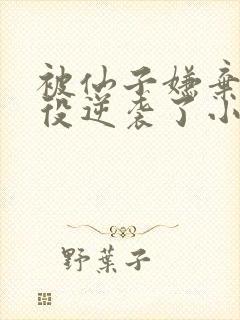 被仙子嫌棄
役逆袭了小
野葉子